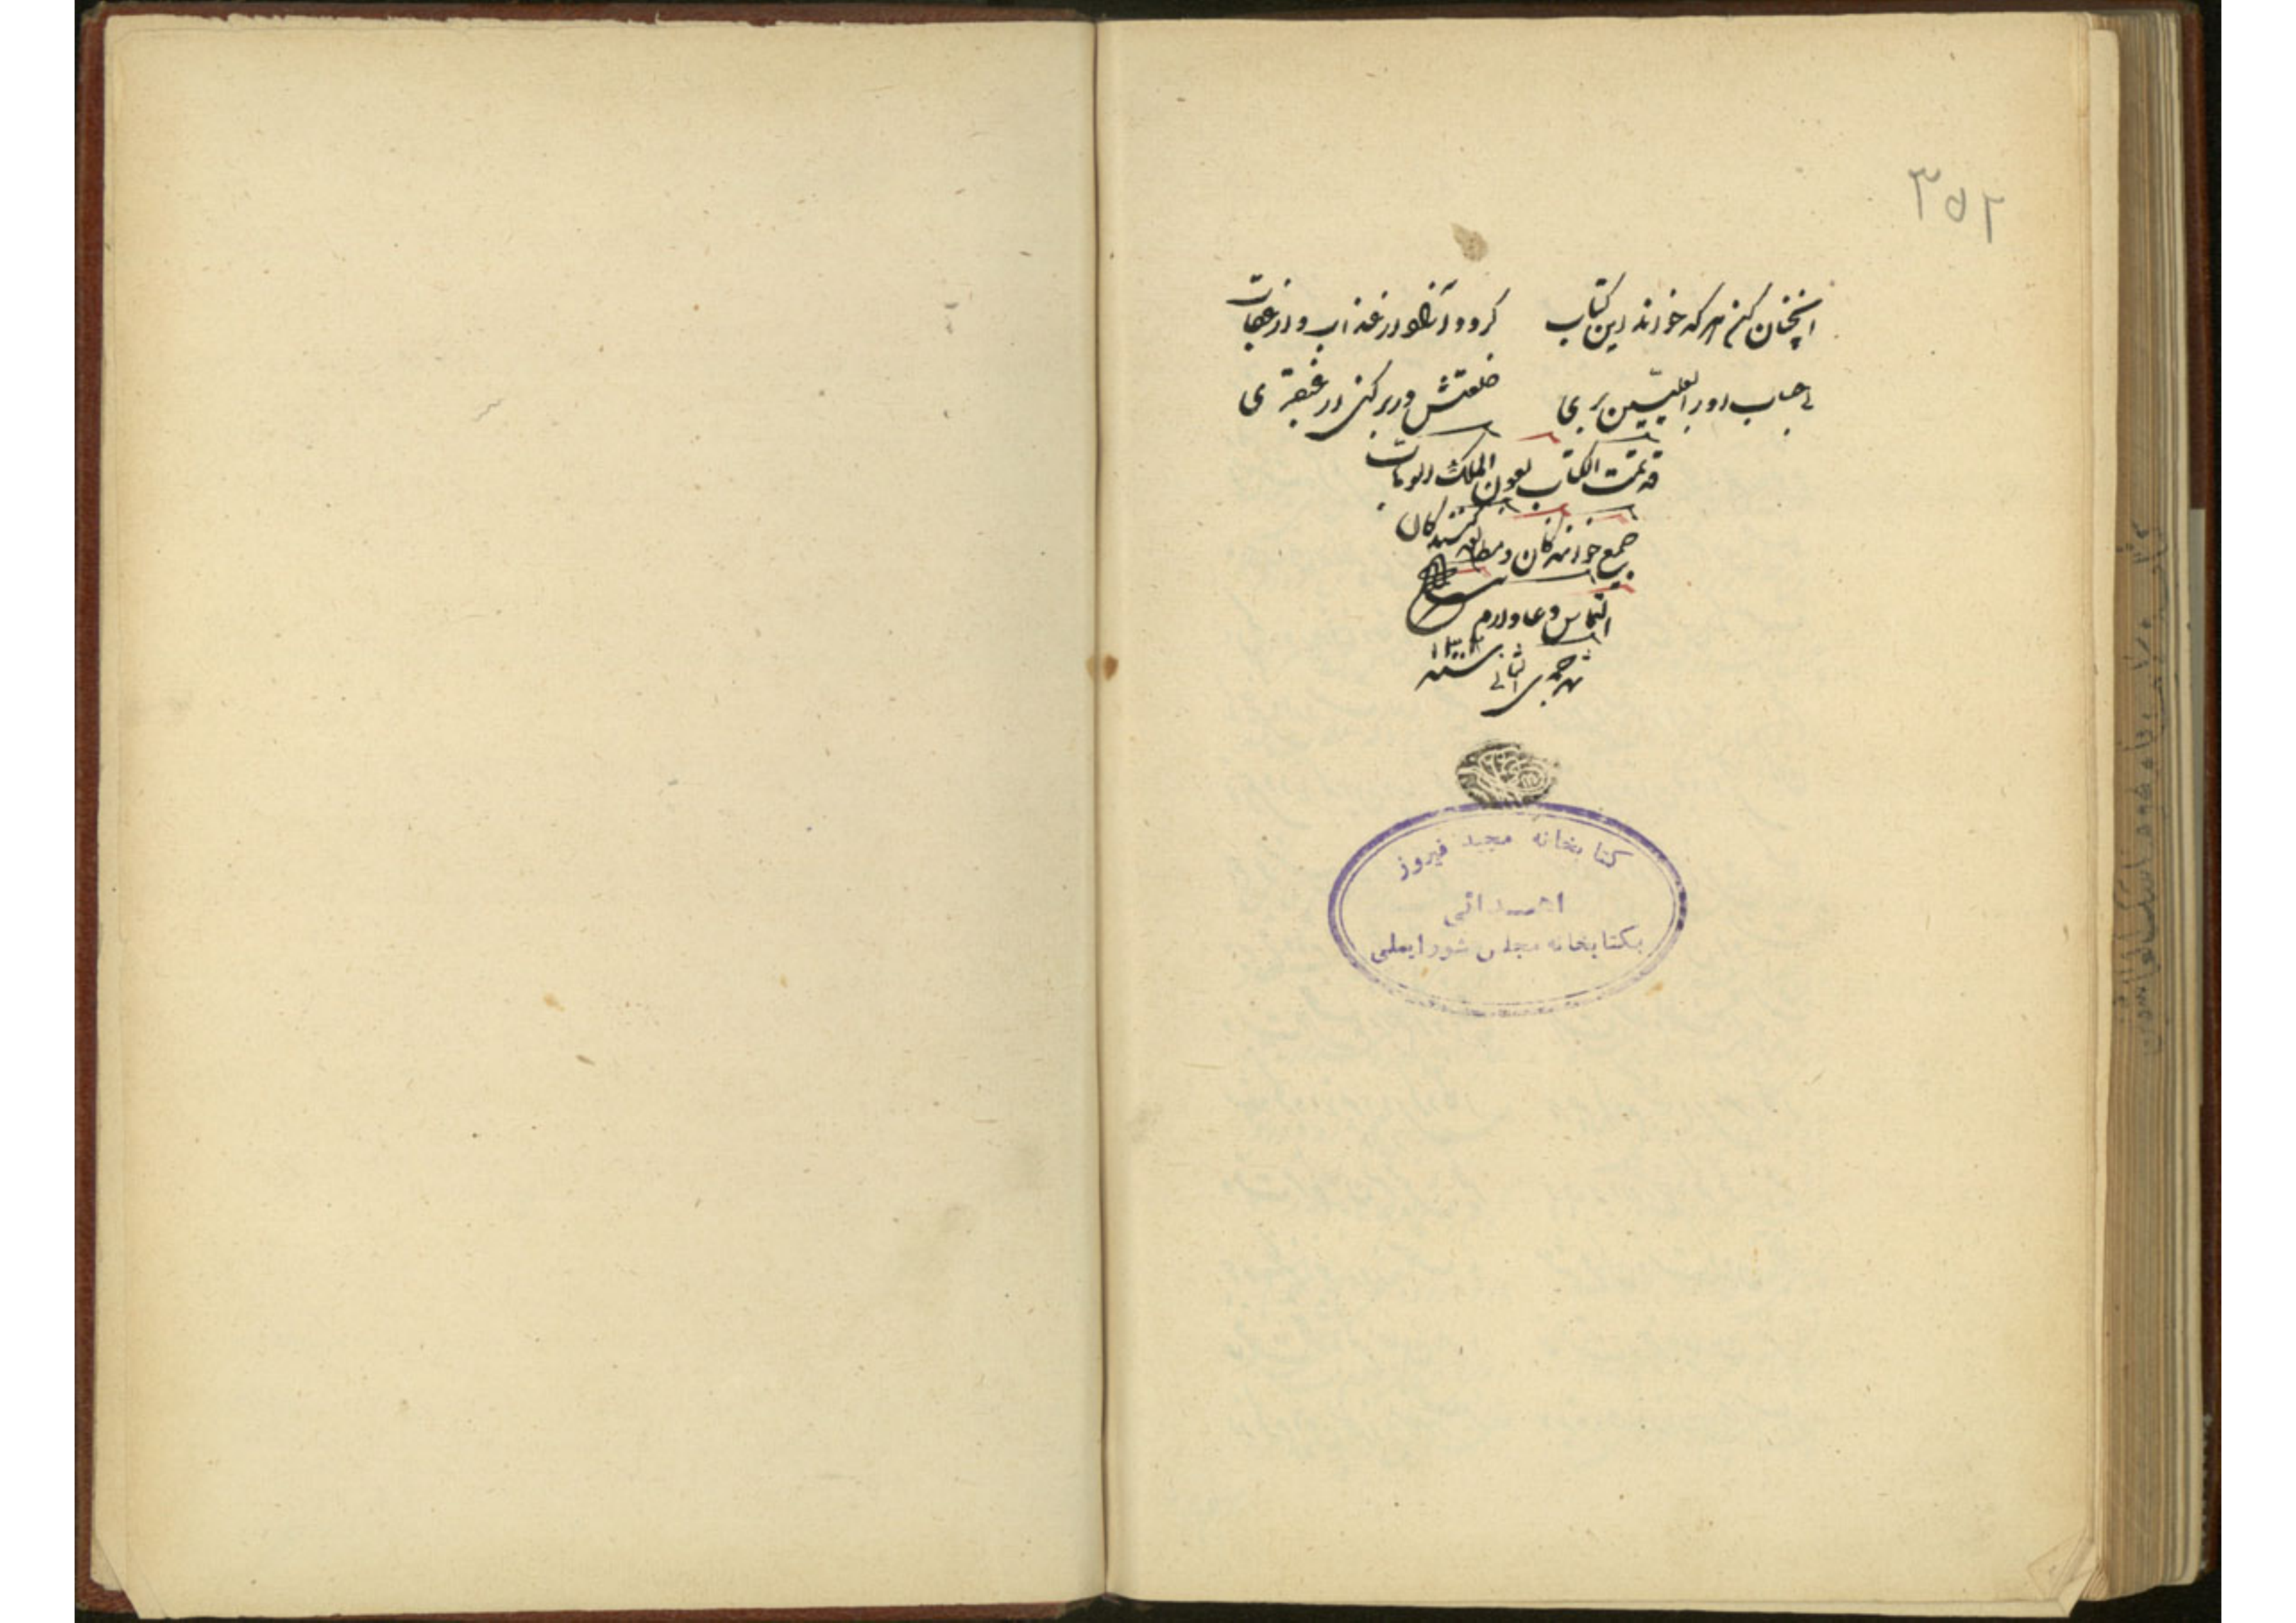 ۳۵۲
اینچنان کن هر که خواند این کتاب گردد آزاد از عذاب و از عقاب
بی حساب او را بعلیین بری خلعتش در بر کنی از عبقری
قد تمت الکتاب بعون الملک الوهاب
جمیع خوانندگان و مطالعه کنندگان
التماس دعا دارم
شهر جمدی الثانی سنه
کتابخانه مجید فیروز
اهدائی
بکتابخانه مجلس شورایملی